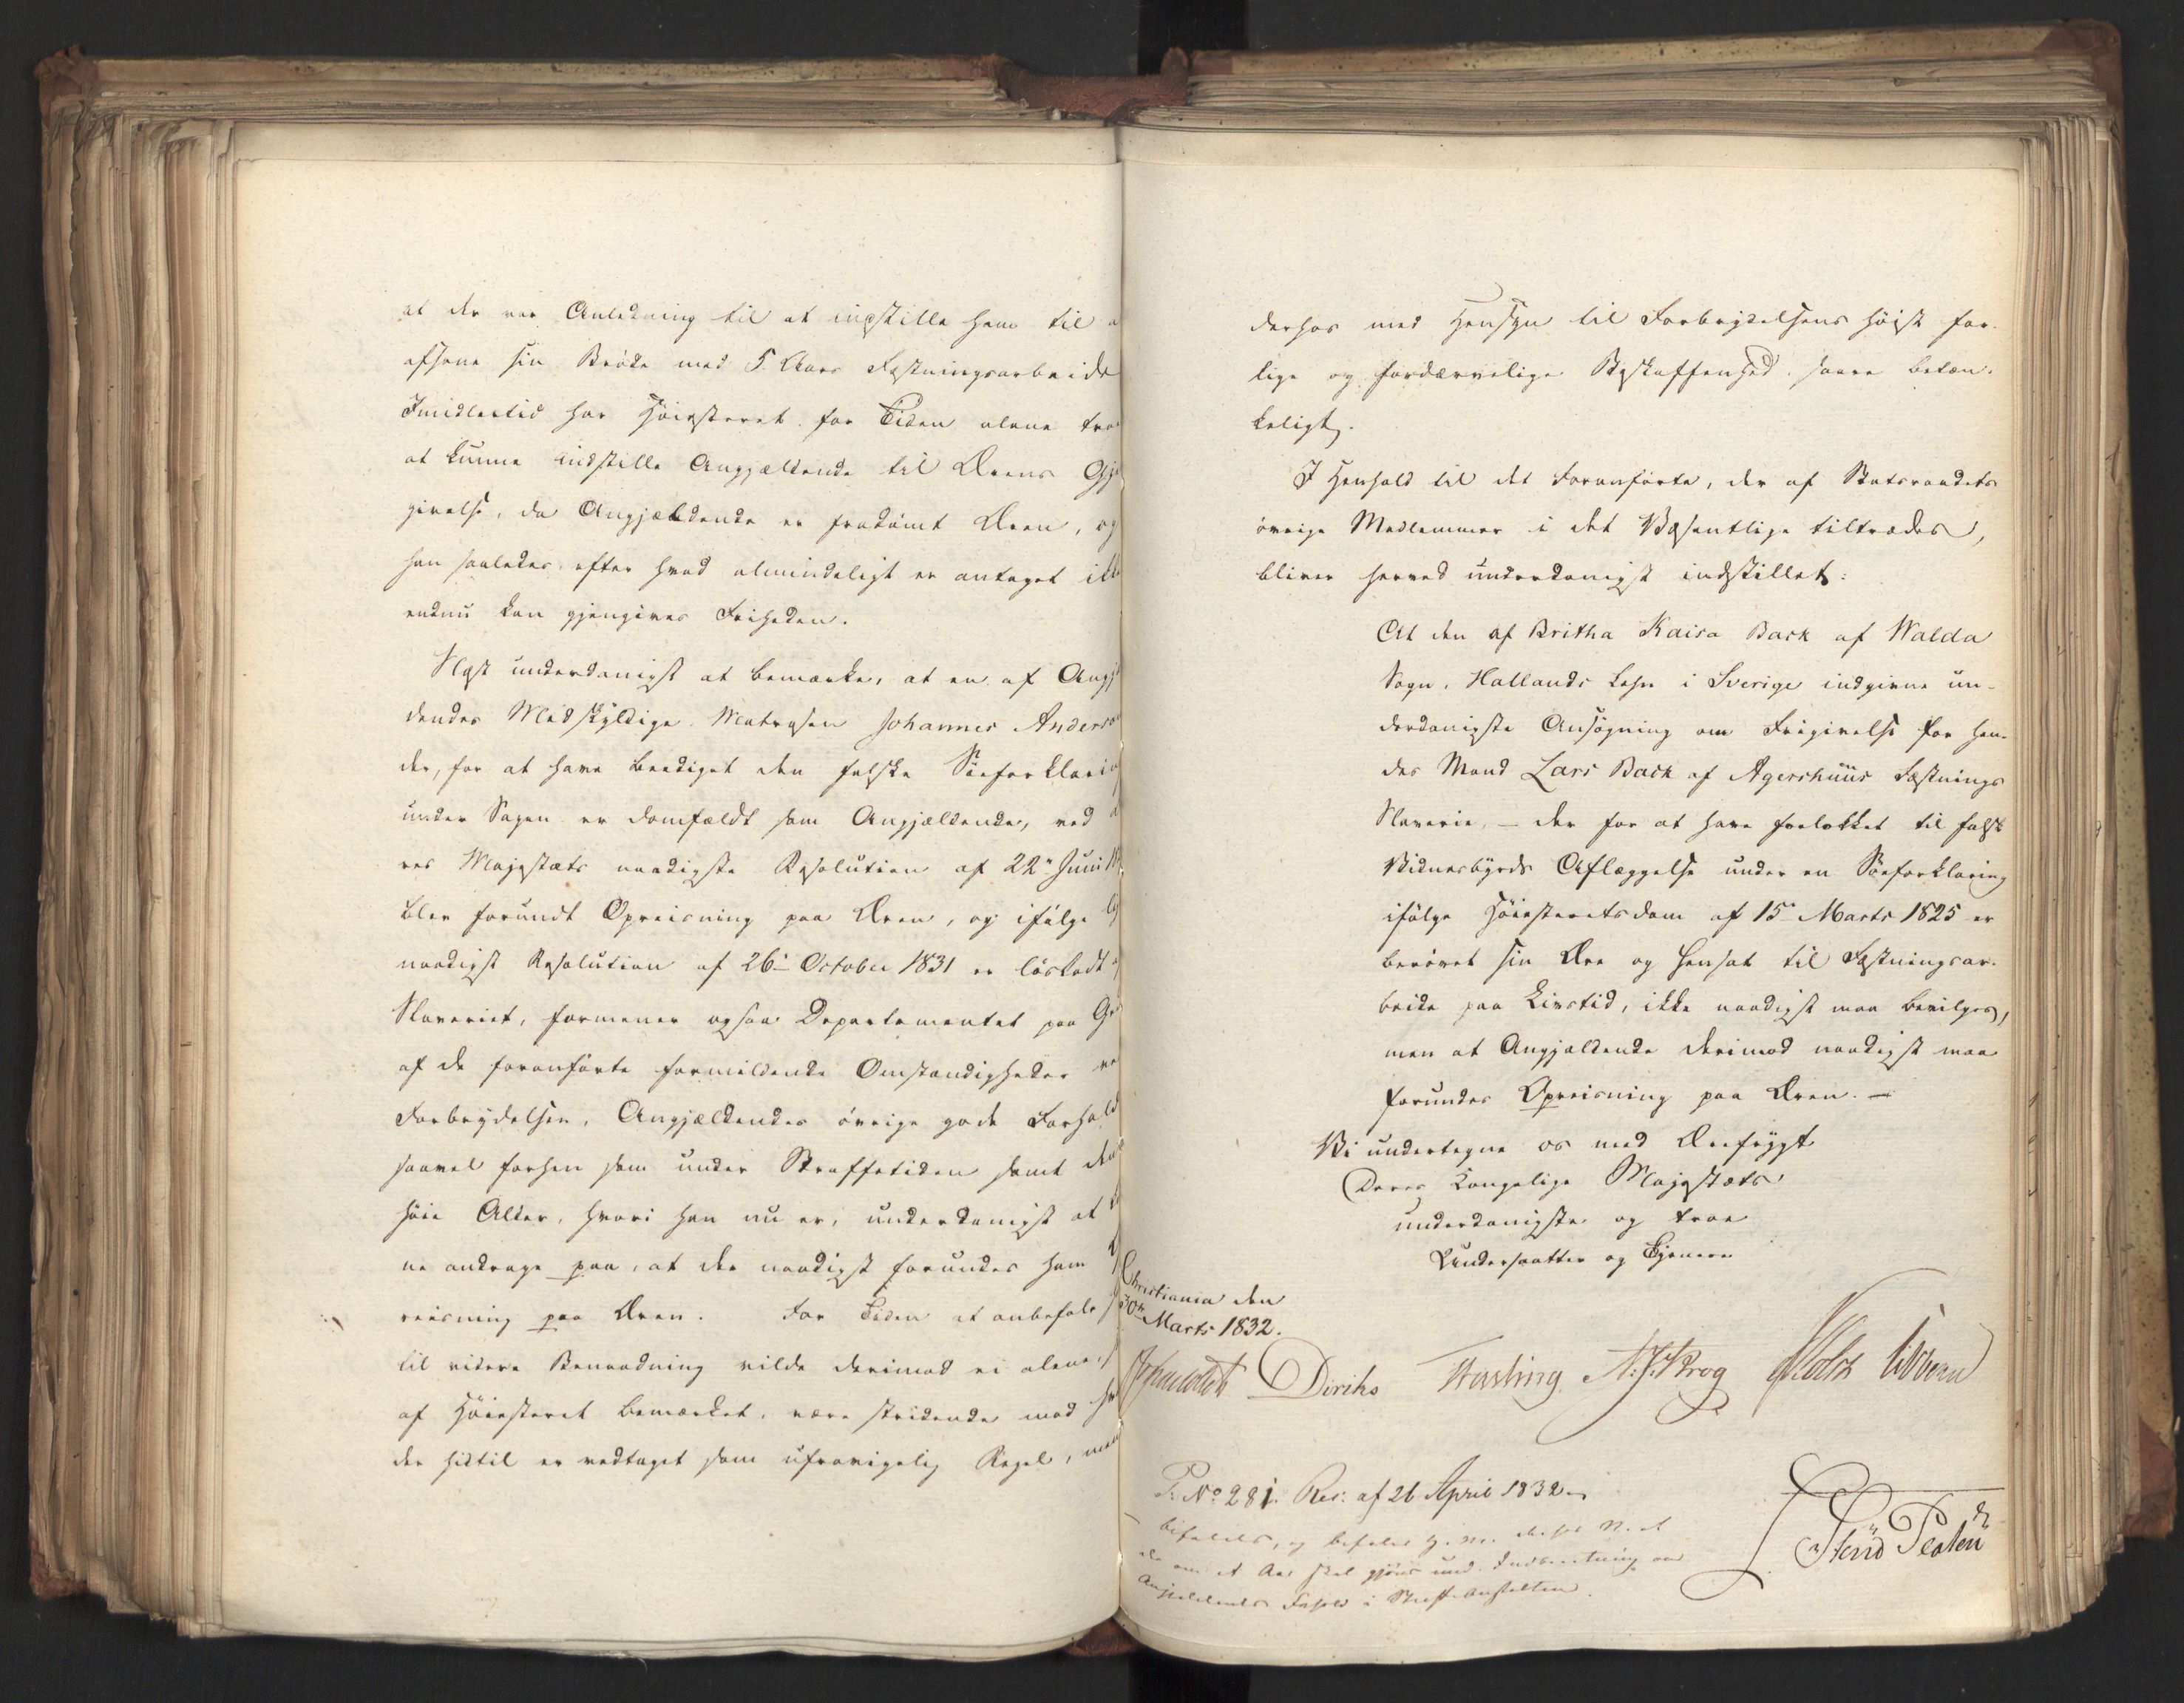 at der var Anledning til at indstille ham til
afsone sin Bröde med 5 Aars Fæstningsarbeide
Imidlertid har Höiesteret for Tiden alene tro
at kunne indstille Angjældende til Ærens Gje
givelse, da Angjældende er fradömt Æren, og
han saaledes efter hvad almindeligt er antaget ikke
endnu kan gjengives Friheden.
Næst underdanigst at bemærke, at en af Angj
dendes Medskyldige Matrosen Johannes Anderso
der, for at have beediget den falske Söeforklarin
under Sagen er domfældt som Angjældende, ved
res Majestæts naadigste Resolution af 22de Juni
blev forundt Opreisning paa Æren, og ifölge
naadigst Resolution af 26de October 1831 er lösladt
Slaveriet, formener ogsaa Departementet paa Gr
af de foranförte formildende Omstændigheder ve
Forbrydelsen, Angjældendes övrige gode Forhold
saavel forhen som under Straffetiden samt den
höie Alder, hvori han nu er, underdanigst at
ne andrage paa, at der naadigst forundes ham
reisning paa Æren. For Tiden at anbefale
til videre Benaadning vilde derimod ei alene,
af Höiesteret bemærket, være stridende mod
der hidtil er vedtaget som ufravigelig Regel, men
derhos med Hensyn til Forbrydelsens höist far-
lige og fordærvelige Beskaffenhed saare betæn-
keligt.
I Henhold til det Foranförte, der af Statsraadets
övrige Medlemmer i det Væsentlige tiltrædes,
bliver herved underdanigst indstillet:
At den af Britha Kaisa Back af Walda
Sogn, Hallands Lehn i Sverige indgivne un-
derdanigste Ansögning om Frigivelse for hen-
des Mand Lars Back af Agershuus Fæstnings
Slaverie, – der for at have forlokket til falsk
Vidnesbyrds Aflæggelse under en Söeforklaring
ifölge Höiesteretsdom af 15de Marts 1825 er
berövet sin Ære og hensat til Fæstningsar-
beide paa Livstid, ikke naadigst maa bevilges,
men at Angjældende derimod naadigst maa
forundes Opreisning paa Æren. –
Vi undertegne os med Ærefrygt
Deres Kongelige Majestæts
underdanigste og troe
Undersaatter og Tjenere
Christiania den
30te Marts 1832.
Diriks Fasting N. J. Krog Holst Vibe
P: No 281. Res: af 26 April 1832.
bifaldes, og befaler H. M. derhos N. at
der om et Aar skal gjöres und. Indberetning om
Angjældendes Forhold i Straf-Anstalten.